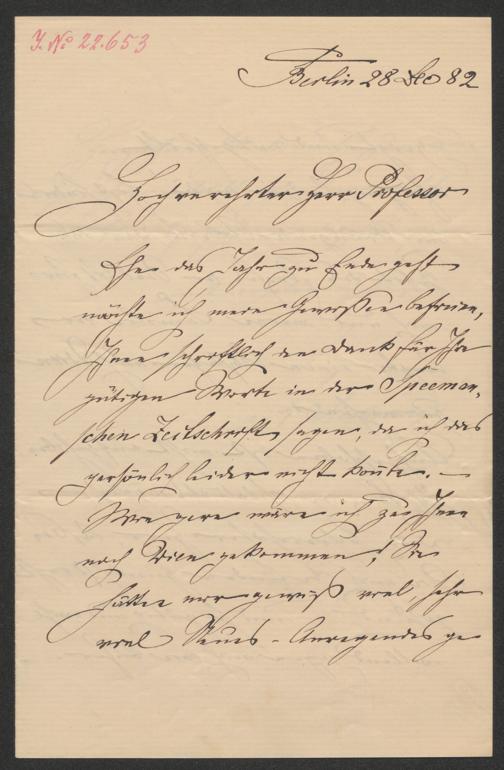 J. No 22.653
Berlin 28 Dec 82
Hochverehrter Herr Professor
Ehe das Jahr zu Ende geht
möchte ich mein Gewissen befreien,
Ihnen schriftlich den Dank für Ihre
gütigen Worte in der Speeman,
schen Zeitschrift sagen, da ich das
persönlich leider nicht konnte. —
Wie gern wäre ich zu Ihnen
nach Wien gekommen! Sie
hätten mir gewiß viel, sehr
viel Neues – Anregendes ge